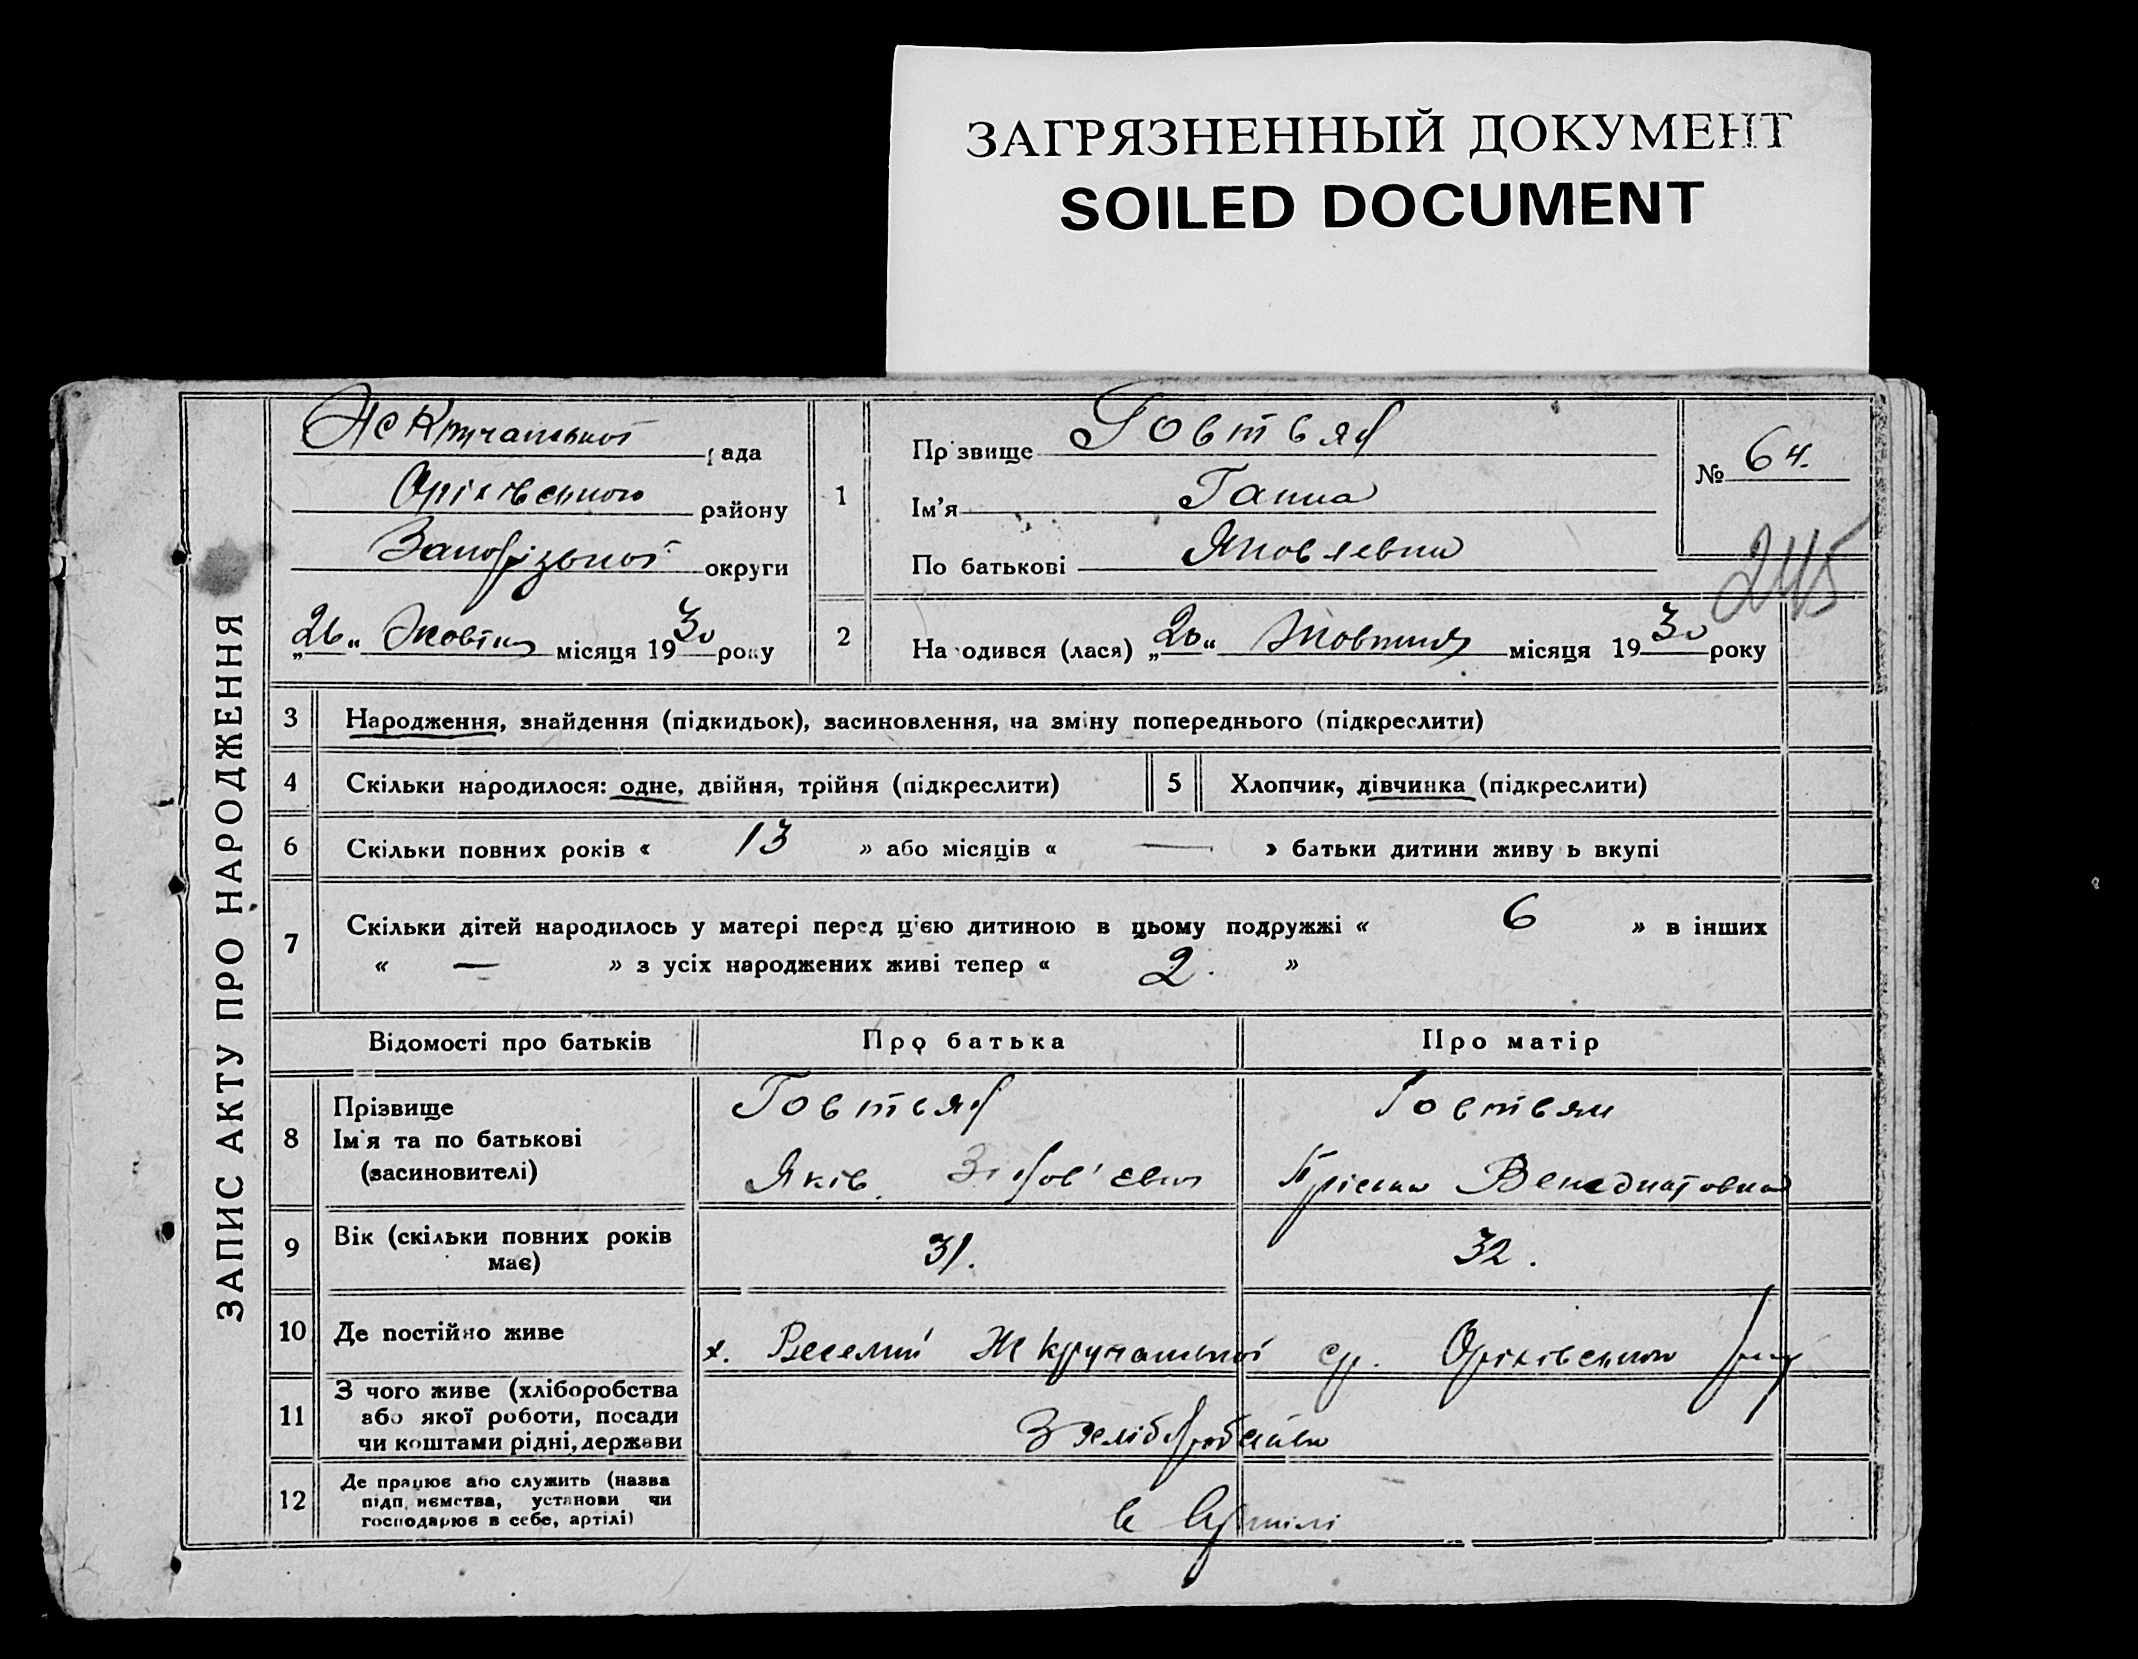 ЗАГРЯЗНЕННЫЙ ДОКУМЕНТ
SOILED DOCUMENT
ЗАПИС АКТУ ПРО НАРОДЖЕННЯ
рада
Оріхівського району
Запорізької округи
„26“ Жовтня місяця 1930 року
1
Прізвище Говтвяд
Ім'я Ганна
По батькові Яковлевна
№ 64.
245
2
Народився (лася) „20“ Жовтня місяця 1930 року
3 Народження, знайдення (підкидьок), засиновлення, на зміну попереднього (підкреслити)
4 Скільки народилося: одне, двійня, трійня (підкреслити)
5 Хлопчик, дівчинка (підкреслити)
6 Скільки повних років « 13 » або місяців « — » батьки дитини живуть вкупі
7 Скільки дітей народилось у матері перед цією дитиною в цьому подружжі « 6 » в інших
« — » з усіх народжених живі тепер « 2. »
Відомості про батьків Про батька Про матір
8 Прізвище
Ім'я та по батькові
(засиновителі)
Говтвяд
Яків
Говтвян
9 Вік (скільки повних років має)
31. 32.
10 Де постійно живе
х. Веселий Оріхівського
11 З чого живе (хліборобства
або якої роботи, посади
чи коштами рідні, держави
З хліборобства
12 Де працює або служить (назва
підприємства, установи чи
господарює в себе, артілі)
в Артілі